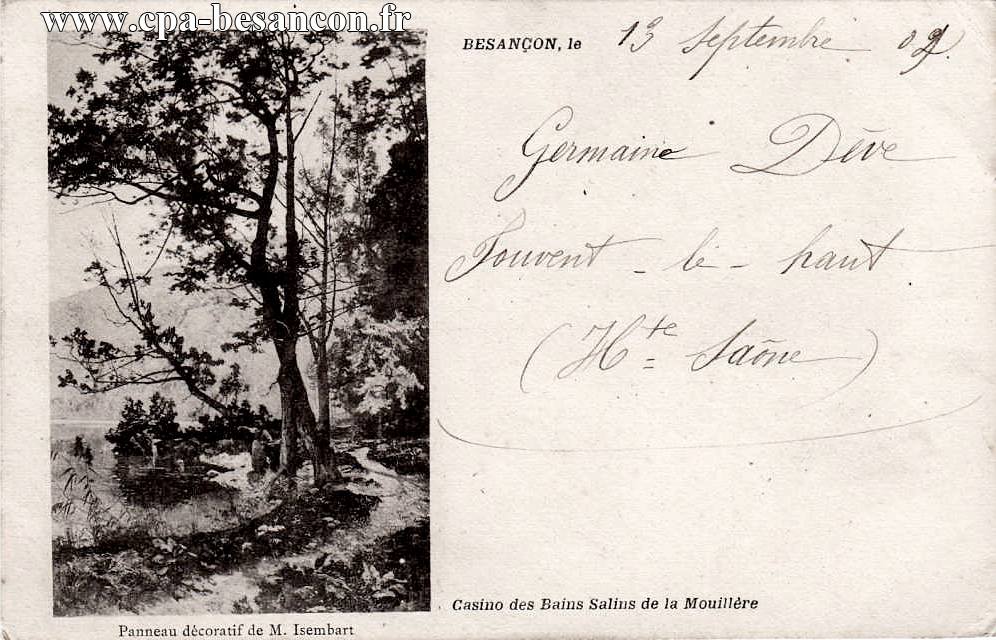 www.cpa-besancon.fr
BESANÇON, le 13 Septembre 02
Germaine Dève
Jouvent-le-haut
(Hte Saône)
Casino des Bains Salins de la Mouillère
Panneau décoratif de M. Isembart